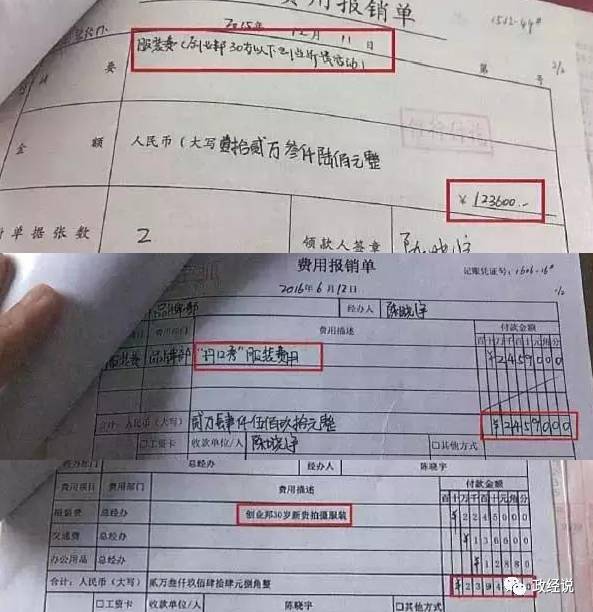 费用报销单
2015年12月11日
1512-44#
服装费(创业邦30岁以下创业新贵活动)
第 号
2/2
摘 要
金 额
人民币(大写)壹拾贰万叁仟陆佰元整
¥123600.-
附单据张数 2
领款人签章 陈晓宇
费用报销单
2016年6月12日
记账凭证号:1606-16#
品牌部
经办人 陈晓宇
费用部门
费用描述
付款金额
百十万千百十元角分
服装费 品牌部 “丹12季”服装费用
¥2459000
合计:人民币(大写) 贰万肆仟伍佰玖拾元整
¥2459000
□工资卡 收款单位/人 陈晓宇 □其他方式
经办部门 总经办 经办人 陈晓宇
费用项目 费用部门 费用描述 付款金额
百十万千百十元角分
服装费 总经办 创业邦30岁新贵拍摄服装 ¥2245000
交通费 总经办 ¥136000
办公用品 总经办 ¥12880
合计:人民币(大写) 贰万叁仟玖佰肆拾肆元捌角整
¥23944
□工资卡 收款单位/人 陈晓宇 □其他方式
政经说